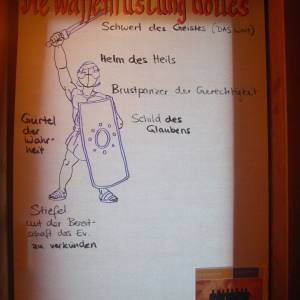 Die Waffenrüstung Gottes
Schwert des Geistes (DAS Wort)
Helm des Heils
Brustpanzer der Gerechtigkeit
Gürtel
der
Wahr-
heit
Schild des
Glaubens
Stiefel
mit der Bereit-
schaft das Ev.
zu verkünden